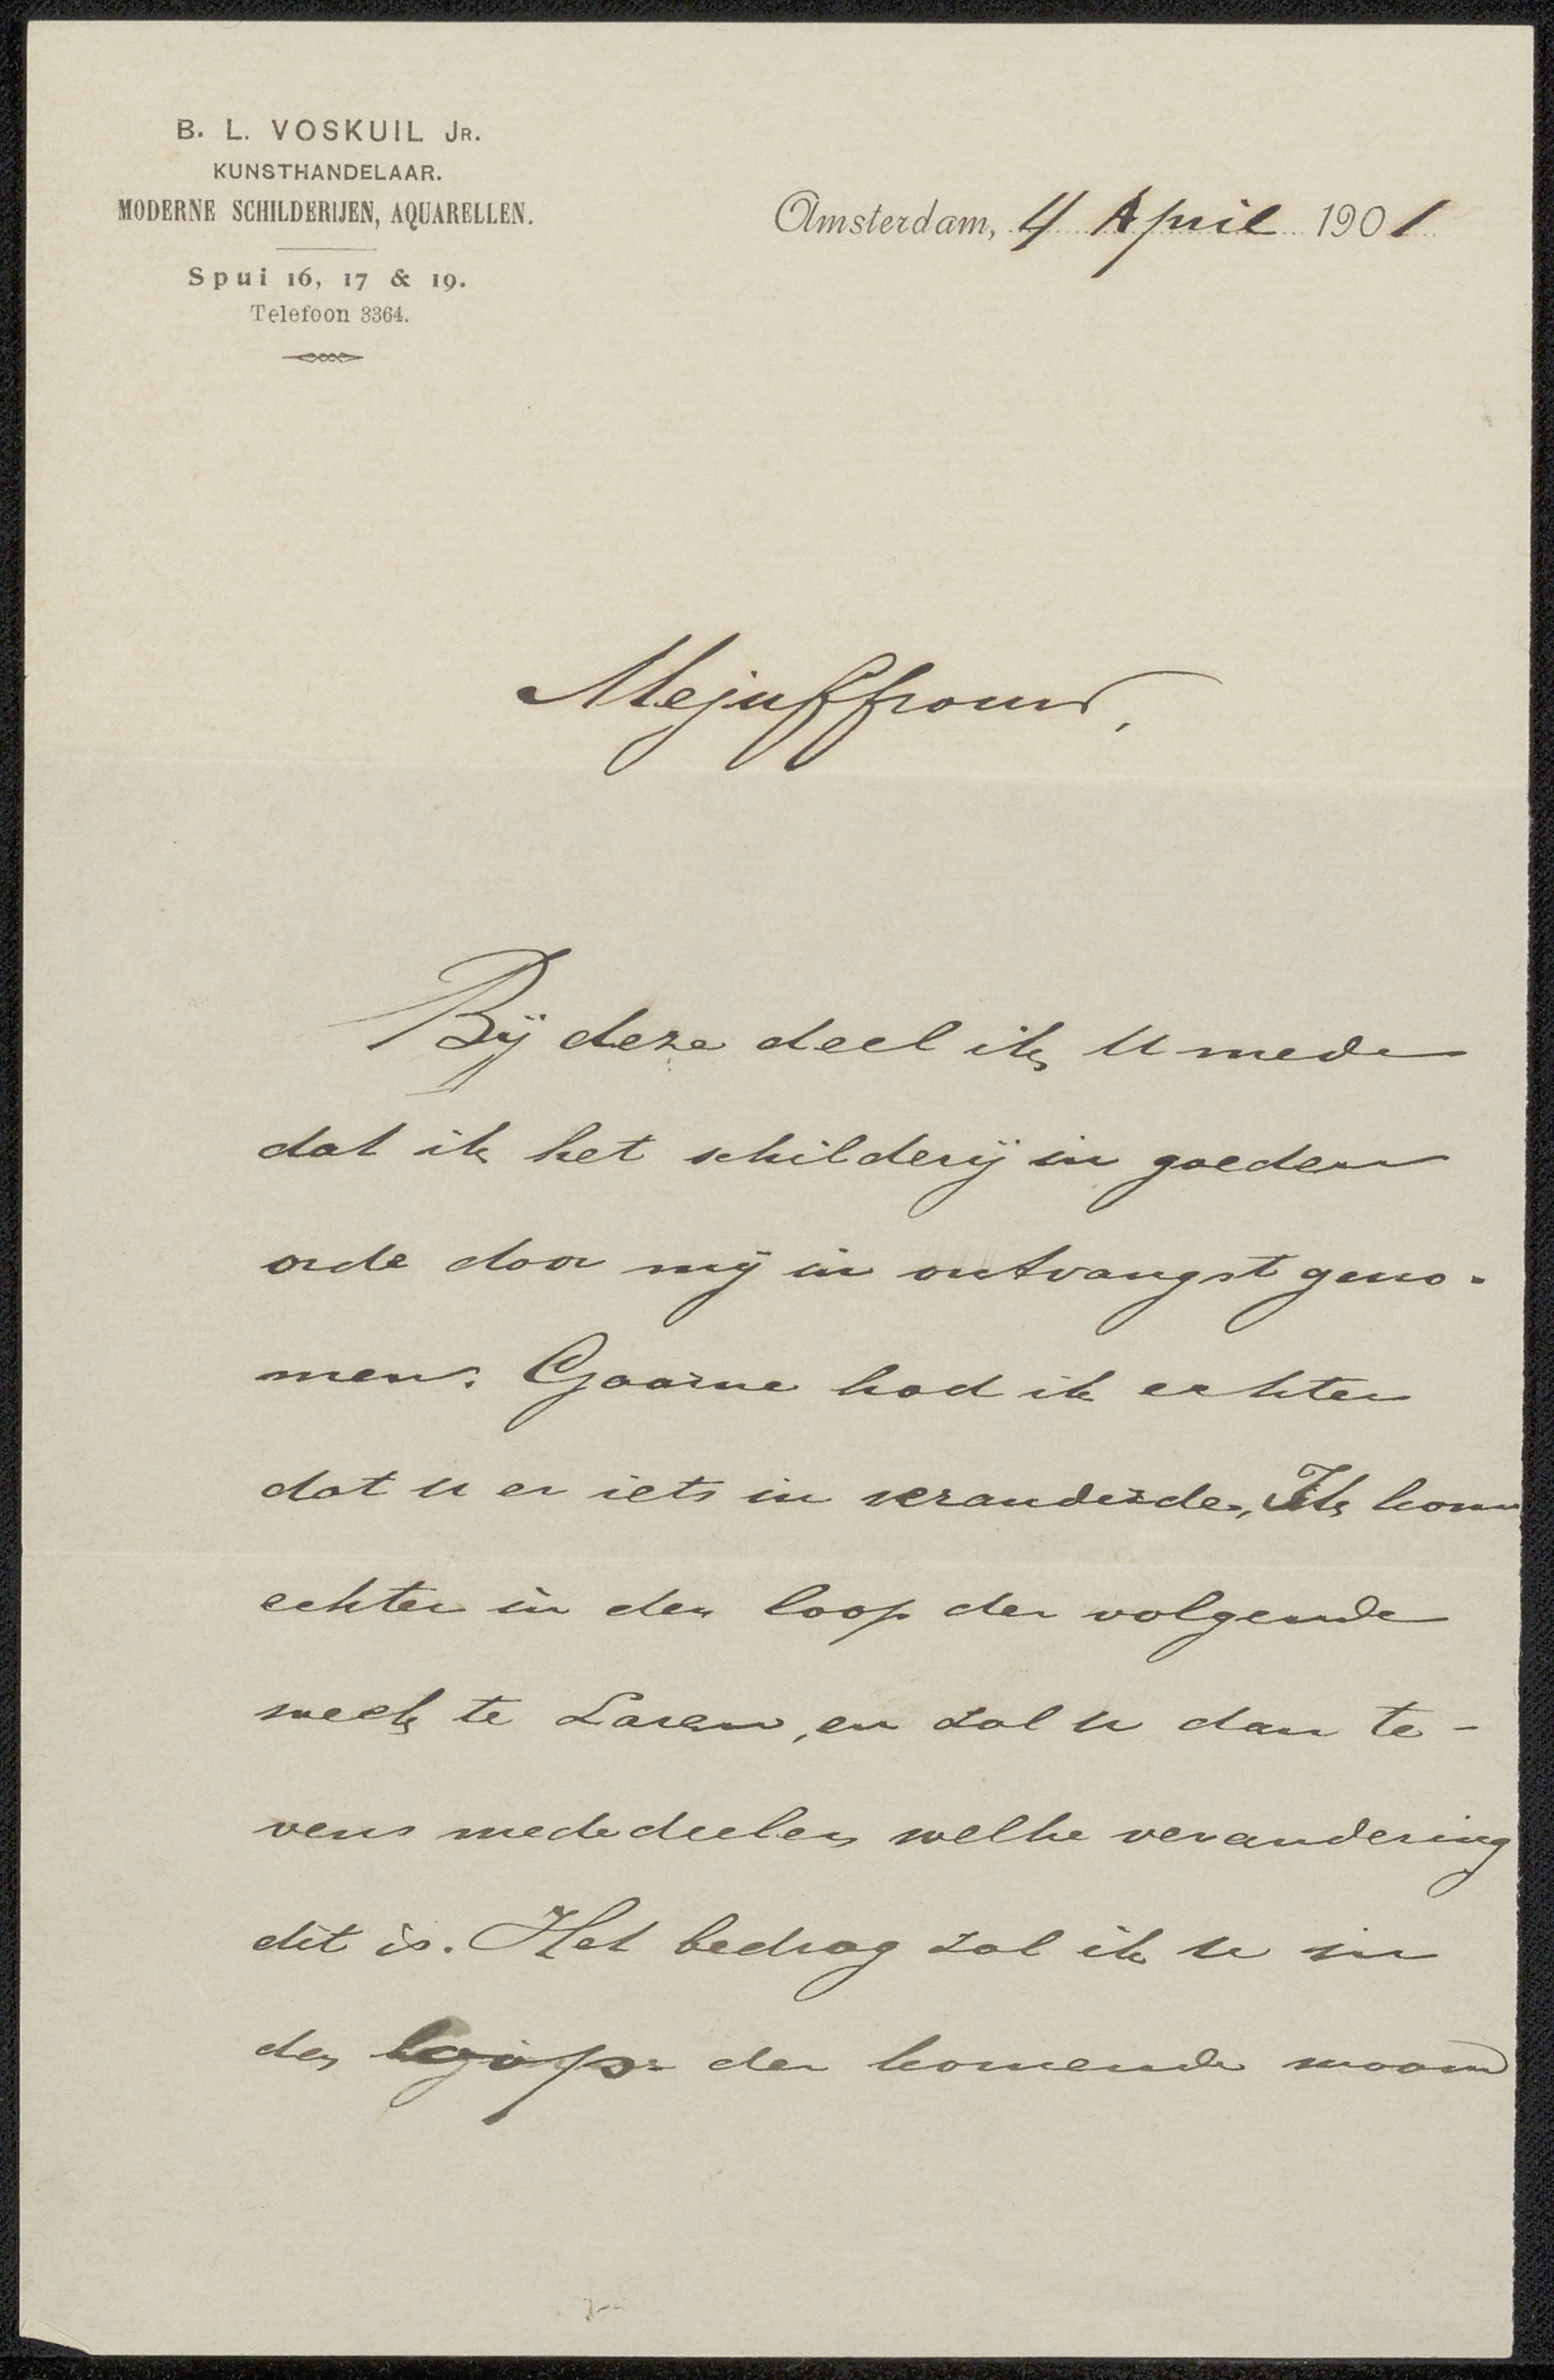 B. L. VOSKUIL JR.
KUNSTHANDELAAR.
MODERNE SCHILDERIJEN, AQUARELLEN.
Spui 16, 17 & 19.
Telefoon 3364.
Amsterdam, 4 April 1901
Mejuffrouw,
Bij deze deel ik U mede
dat ik het schilderij in goeden
orde door mij in ontvangst geno-
men. Gaarne had ik echter
dat U er iets in veranderde, Ik kom
echter in den loop der volgende
week te Laren, en zal U dan te-
vens mededeelen welke verandering
dit is. Het bedrag zal ik U in
den loop der komende maand